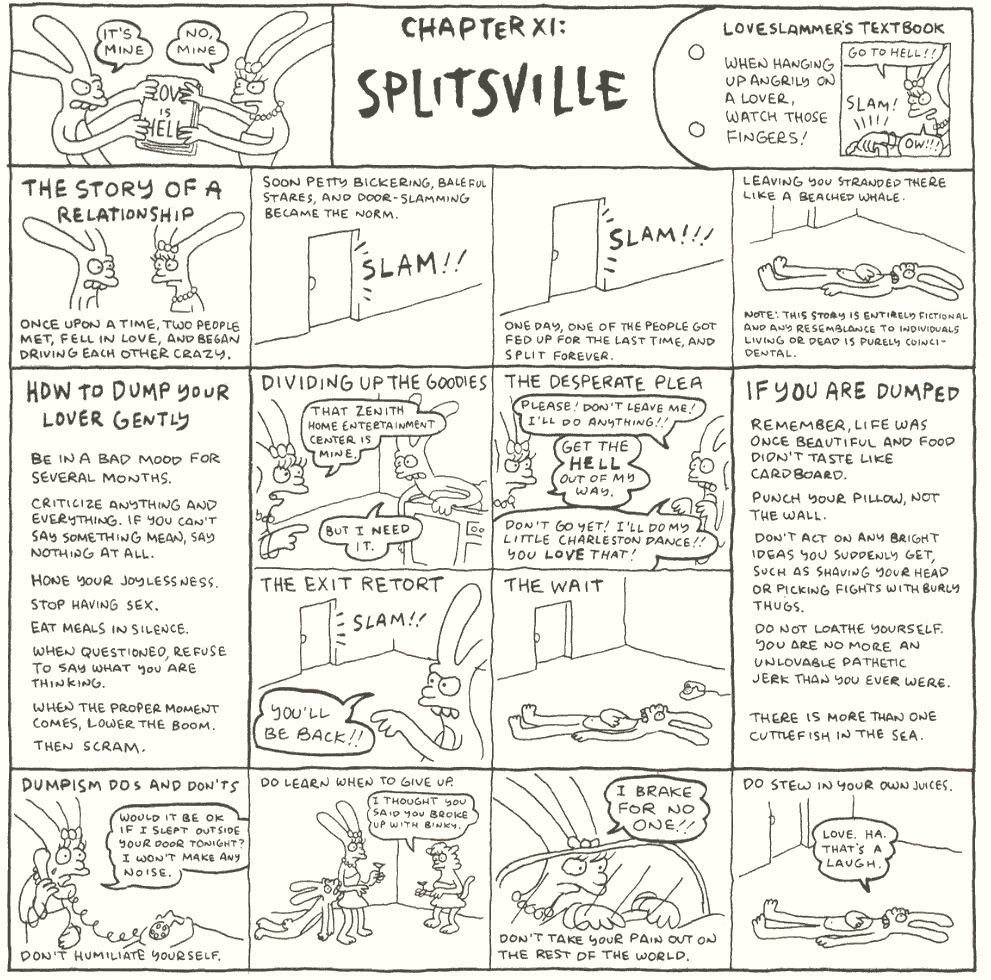 IT'S
MINE
NO,
MINE
LOVE
IS
HELL
CHAPTER XI:
SPLITSVILLE
LOVESLAMMER'S TEXTBOOK
WHEN HANGING
UP ANGRILY ON
A LOVER,
WATCH THOSE
FINGERS!
GO TO HELL!!
SLAM!
OW!!!
THE STORY OF A
RELATIONSHIP
ONCE UPON A TIME, TWO PEOPLE
MET, FELL IN LOVE, AND BEGAN
DRIVING EACH OTHER CRAZY.
SOON PETTY BICKERING, BALEFUL
STARES, AND DOOR-SLAMMING
BECAME THE NORM.
SLAM!!
SLAM!!!
ONE DAY, ONE OF THE PEOPLE GOT
FED UP FOR THE LAST TIME, AND
SPLIT FOREVER.
LEAVING YOU STRANDED THERE
LIKE A BEACHED WHALE.
NOTE: THIS STORY IS ENTIRELY FICTIONAL
AND ANY RESEMBLANCE TO INDIVIDUALS
LIVING OR DEAD IS PURELY COINCI-
DENTAL.
HOW TO DUMP YOUR
LOVER GENTLY
BE IN A BAD MOOD FOR
SEVERAL MONTHS.
CRITICIZE ANYTHING AND
EVERYTHING. IF YOU CAN'T
SAY SOMETHING MEAN, SAY
NOTHING AT ALL.
HONE YOUR JOYLESSNESS.
STOP HAVING SEX.
EAT MEALS IN SILENCE.
WHEN QUESTIONED, REFUSE
TO SAY WHAT YOU ARE
THINKING.
WHEN THE PROPER MOMENT
COMES, LOWER THE BOOM.
THEN SCRAM.
DIVIDING UP THE GOODIES
THAT ZENITH
HOME ENTERTAINMENT
CENTER IS
MINE.
BUT I NEED
IT.
THE DESPERATE PLEA
PLEASE! DON'T LEAVE ME!
I'LL DO ANYTHING!!
GET THE
HELL
OUT OF MY
WAY.
DON'T GO YET! I'LL DO MY
LITTLE CHARLESTON DANCE!!
YOU LOVE THAT!
THE EXIT RETORT
SLAM!!
YOU'LL
BE BACK!!
THE WAIT
IF YOU ARE DUMPED
REMEMBER, LIFE WAS
ONCE BEAUTIFUL AND FOOD
DIDN'T TASTE LIKE
CARDBOARD.
PUNCH YOUR PILLOW, NOT
THE WALL.
DON'T ACT ON ANY BRIGHT
IDEAS YOU SUDDENLY GET,
SUCH AS SHAVING YOUR HEAD
OR PICKING FIGHTS WITH BURLY
THUGS.
DO NOT LOATHE YOURSELF.
YOU ARE NO MORE AN
UNLOVABLE PATHETIC
JERK THAN YOU EVER WERE.
THERE IS MORE THAN ONE
CUTTLEFISH IN THE SEA.
DUMPISM DOS AND DON'TS
WOULD IT BE OK
IF I SLEPT OUTSIDE
YOUR DOOR TONIGHT?
I WON'T MAKE ANY
NOISE.
DON'T HUMILIATE YOURSELF.
DO LEARN WHEN TO GIVE UP.
I THOUGHT YOU
SAID YOU BROKE
UP WITH BINKY.
I BRAKE
FOR NO
ONE!!
DON'T TAKE YOUR PAIN OUT ON
THE REST OF THE WORLD.
DO STEW IN YOUR OWN JUICES.
LOVE. HA.
THAT'S A
LAUGH.